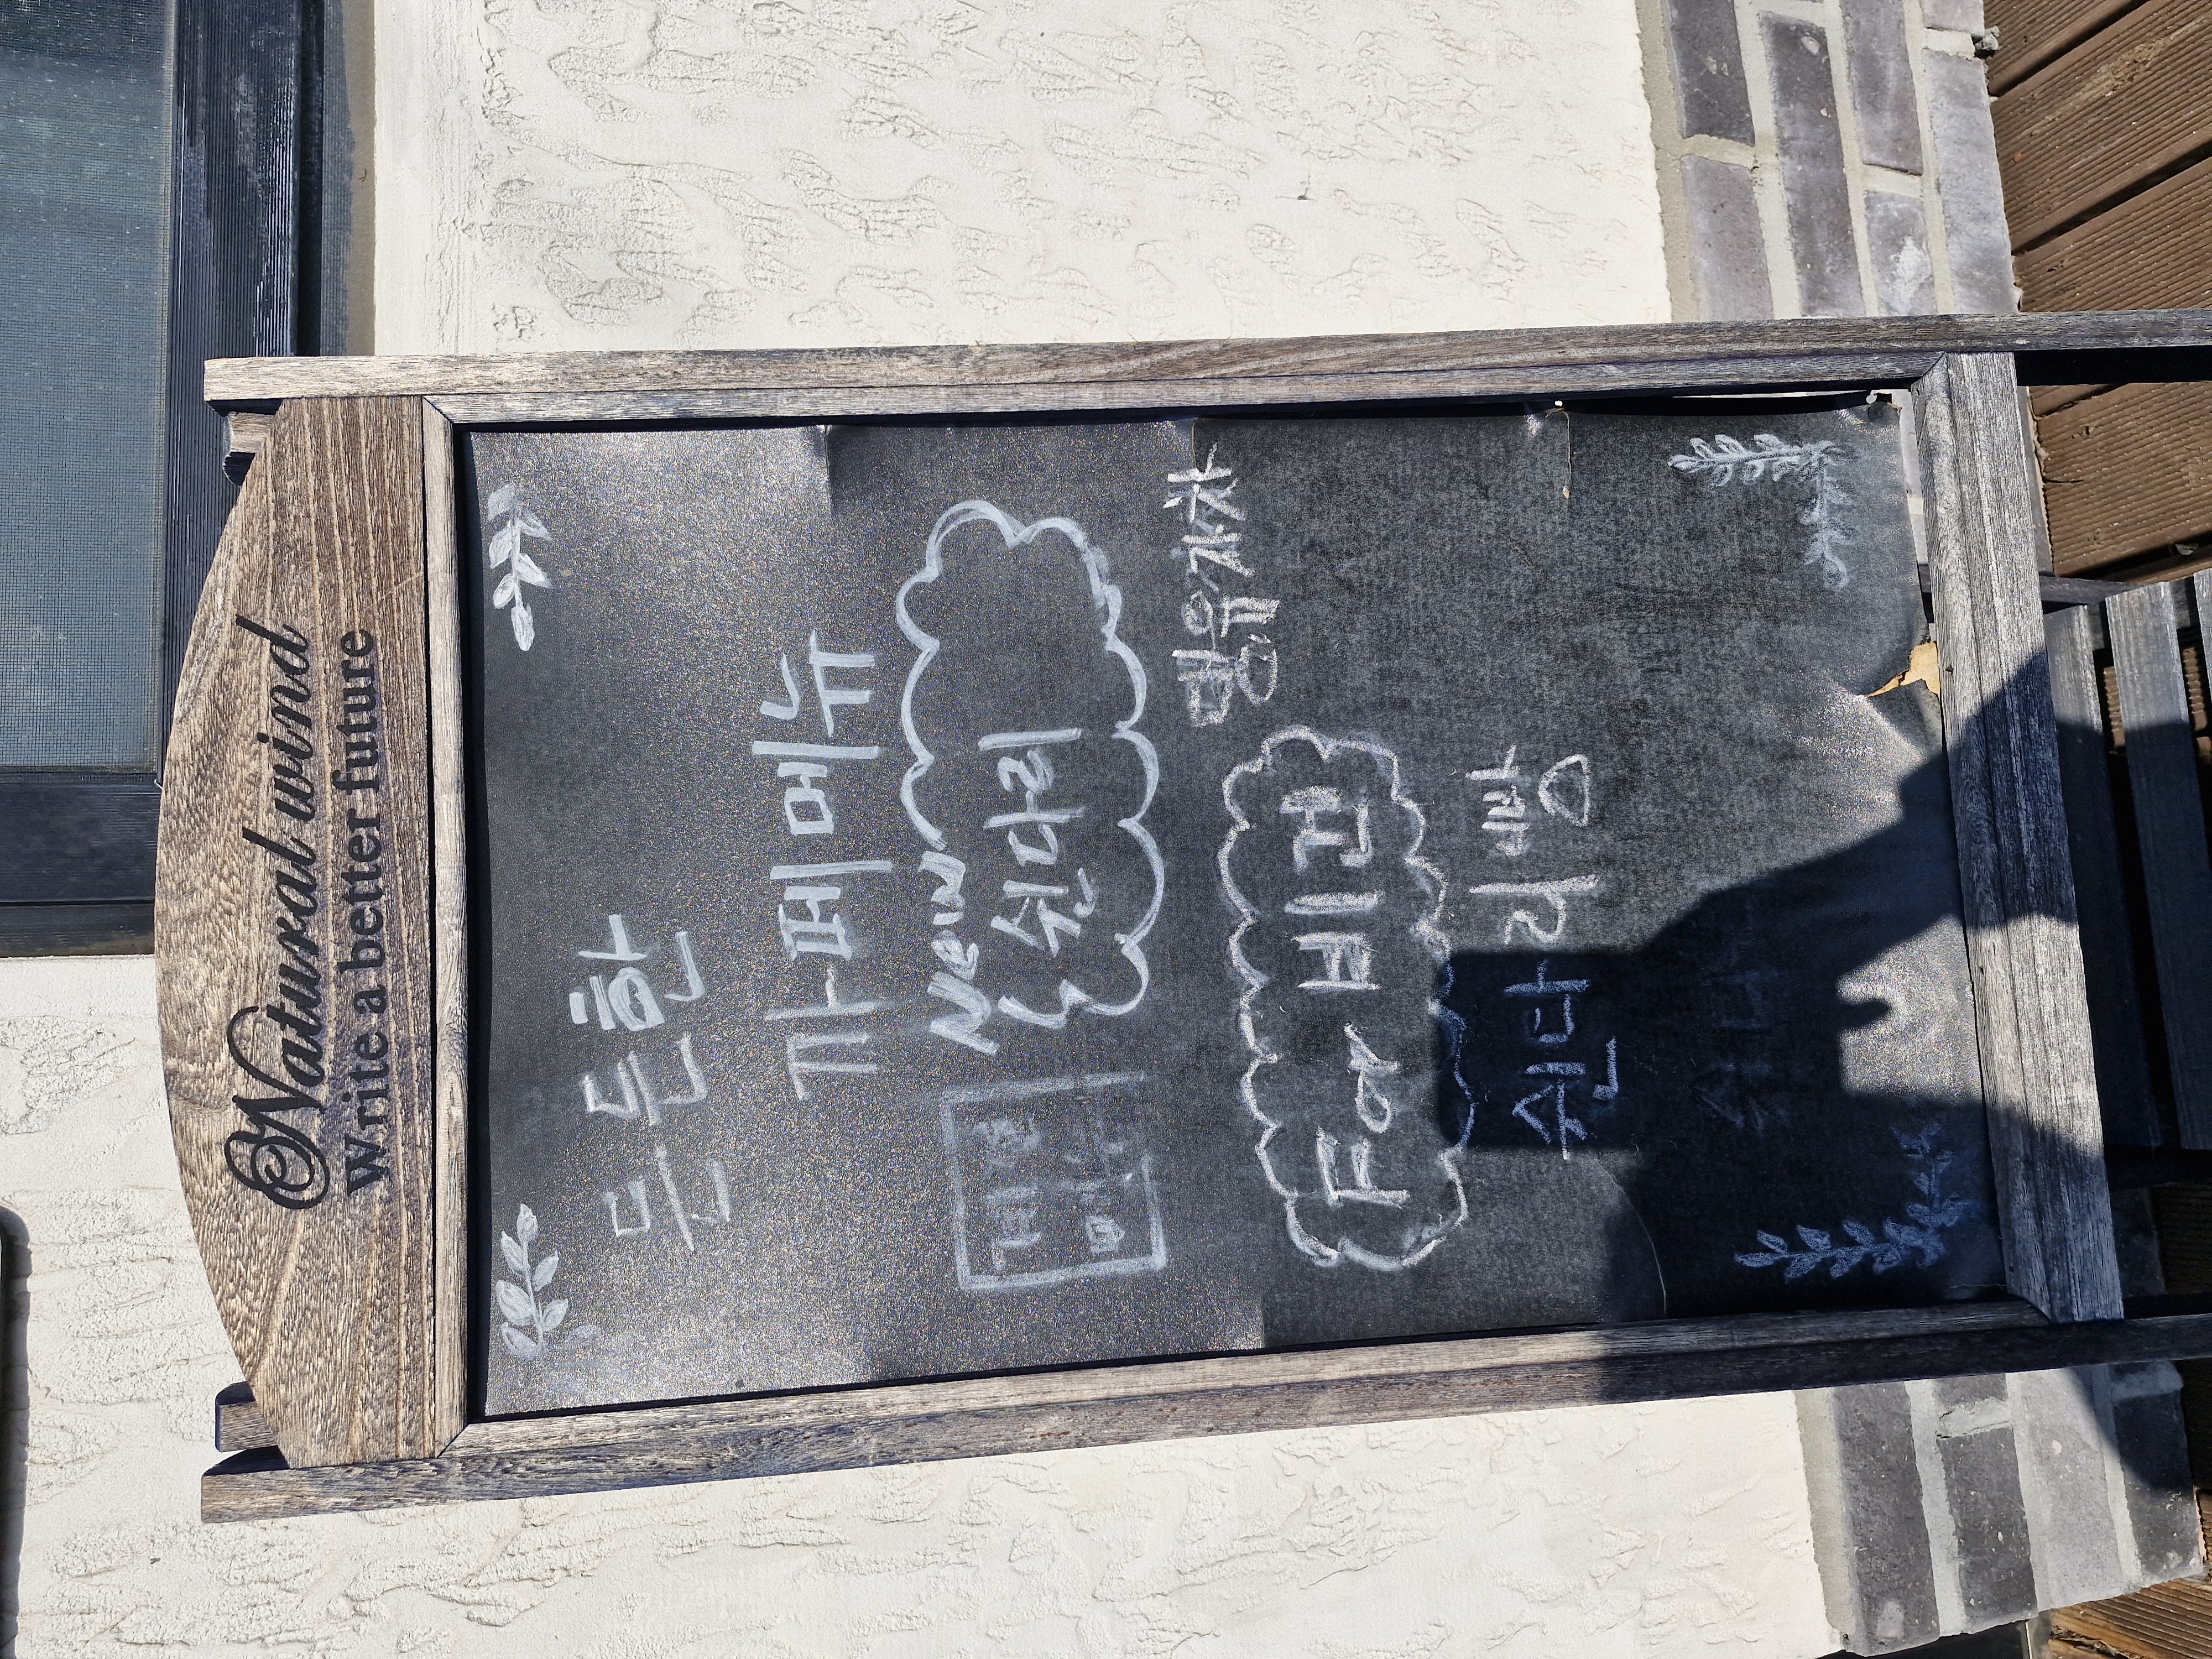 Natural wind
Write a better future
든든한
까페 메뉴
New
쉰다리
댕유자차
For 비건
쉰다리 빵